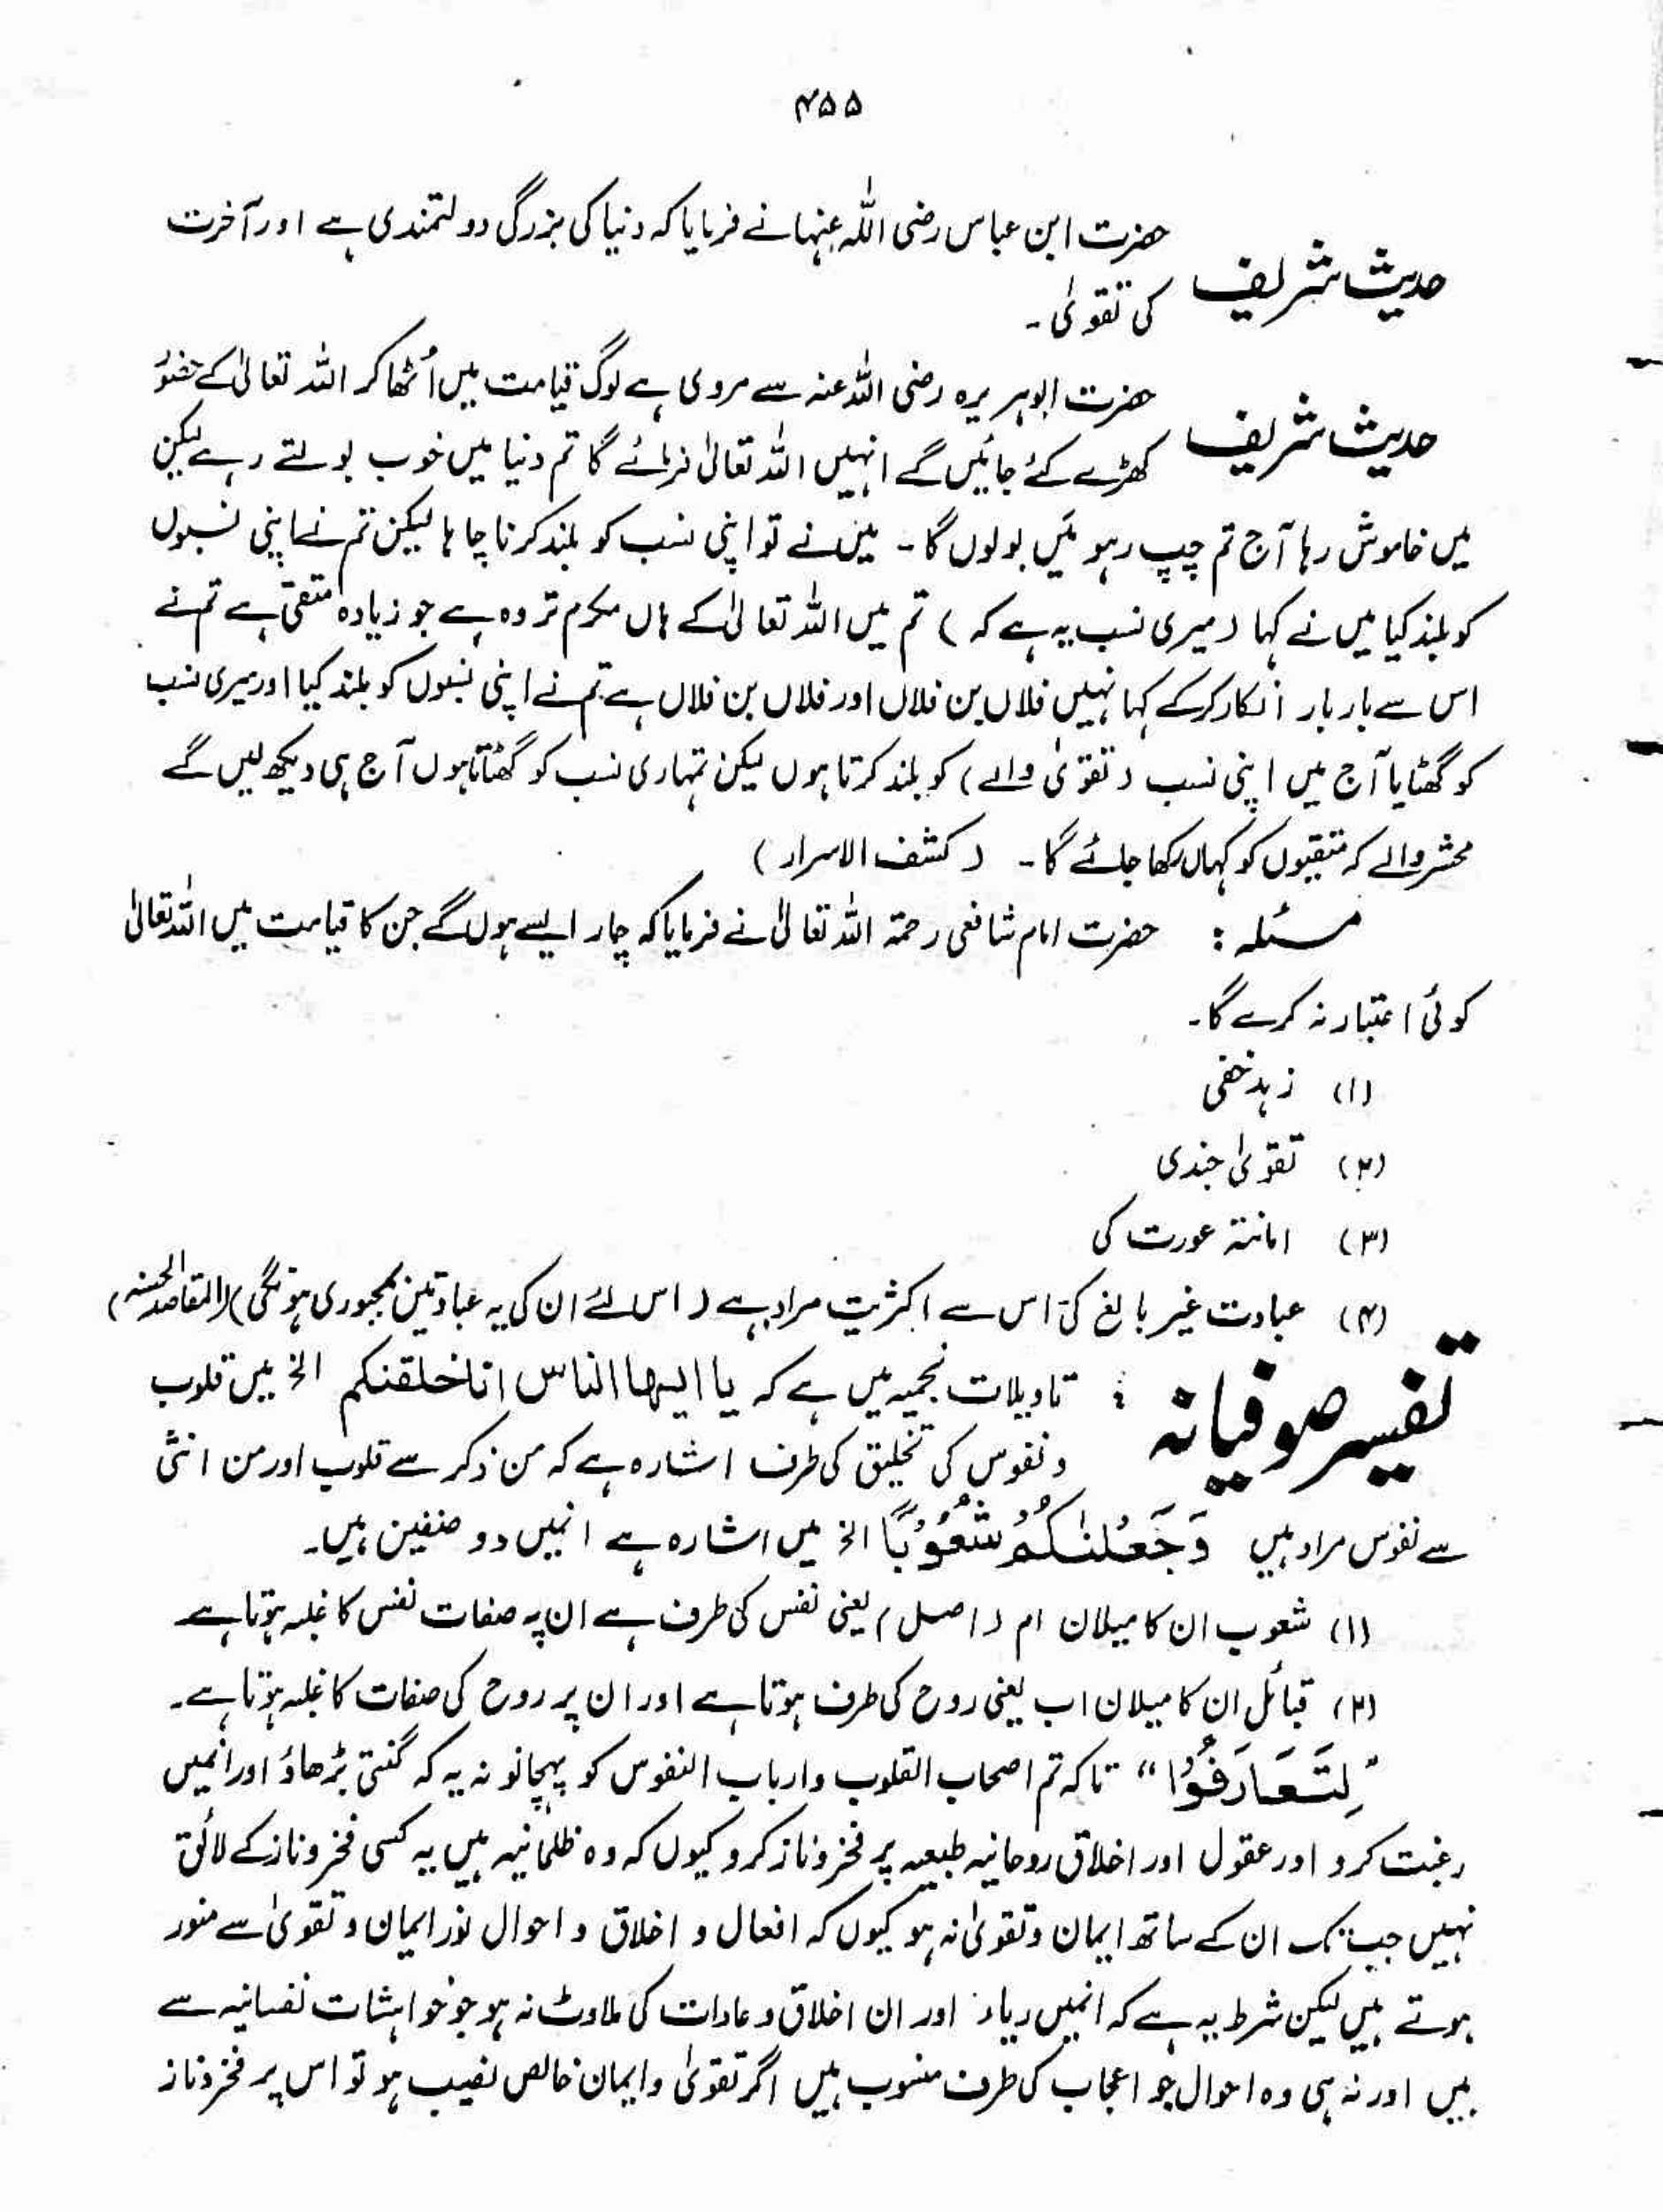 ۴۵۵
حدیث شریف حضرت ابن عباس رضی اللہ عنہما نے فرمایا کہ دنیا کی بزرگی دولتمندی ہے اور آخرت
کی تقویٰ۔
حدیث شریف حضرت ابوہریرہ رضی اللہ عنہ سے مروی ہے لوگ قیامت میں اُٹھا کر اللہ تعالیٰ کے حضور
کھڑے کئے جائیں گے انہیں اللہ تعالیٰ فرمائے گا تم دنیا میں خوب بولتے رہے لیکن
میں خاموش رہا آج تم چپ رہو میں بولوں گا۔ میں نے تو اپنی نسب کو بلند کرنا چاہا لیکن تم نے اپنی نسبوں
کو بلند کیا میں نے کہا (میری نسب یہ ہے کہ) تم میں اللہ تعالیٰ کے ہاں مکرم تر وہ ہے جو زیادہ متقی ہے تم نے
اس سے بار بار انکار کرکے کہا نہیں فلاں بن فلاں اور فلاں بن فلاں ہے تم نے اپنی نسبوں کو بلند کیا اور میری نسب
کو گھٹایا آج میں اپنی نسب (تقویٰ والے) کو بلند کرتا ہوں لیکن تمہاری نسب کو گھٹاتا ہوں آج ہی دیکھ لیں گے
محشر والے کہ متقیوں کو کہاں رکھا جائے گا۔ (کشف الاسرار)
مسئلہ : حضرت امام شافعی رحمۃ اللہ تعالیٰ نے فرمایا کہ چار ایسے ہوں گے جن کا قیامت میں اللہ تعالیٰ
کوئی اعتبار نہ کرے گا۔
(۱) زہد خفی
(۲) تقویٰ جندی
(۳) امانتہ عورت کی
(۴) عبادت غیر بالغ کی اس سے اکثریت مراد ہے (اس لئے ان کی یہ عبادتیں بمجبوری ہونگی) (المقاصد الحسنہ)
تفسیر صوفیانہ : تاویلات نجمیہ میں ہے کہ یا ایہا الناس انا خلقنکم الخ میں قلوب
و نفوس کی تخلیق کی طرف اشارہ ہے کہ من ذکر سے قلوب اور من انثیٰ
سے نفوس مراد ہیں وَجَعَلْنٰكُمْ شُعُوْبًا الخ میں اشارہ ہے انہیں دو صنفین ہیں۔
(۱) شعوب ان کا میلان ام (اصل) یعنی نفس کی طرف ہے ان پہ صفات نفس کا غلبہ ہوتا ہے
(۲) قبائل ان کا میلان اب یعنی روح کی طرف ہوتا ہے اور ان پر روح کی صفات کا غلبہ ہوتا ہے۔
"لِتَعَارَفُوْا" تاکہ تم اصحاب القلوب و ارباب النفوس کو پہچانو نہ یہ کہ گنتی بڑھاؤ اور انہیں
رغبت کرو اور عقول اور اخلاق روحانیہ طبعیہ پر فخر و ناز کرو کیوں کہ وہ ظلمانیہ ہیں یہ کسی فخر و ناز کے لائق
نہیں جب تک ان کے ساتھ ایمان و تقویٰ نہ ہو کیوں کہ افعال و اخلاق و احوال نور ایمان و تقویٰ سے منور
ہوتے ہیں لیکن شرط یہ ہے کہ انہیں ریاء اور ان اخلاق و عادات کی ملاوٹ نہ ہو جو خواہشات نفسانیہ سے
ہیں اور نہ ہی وہ احوال جو اعجاب کی طرف منسوب ہیں اگر تقویٰ و ایمان خالص نصیب ہو تو اس پر فخر و ناز